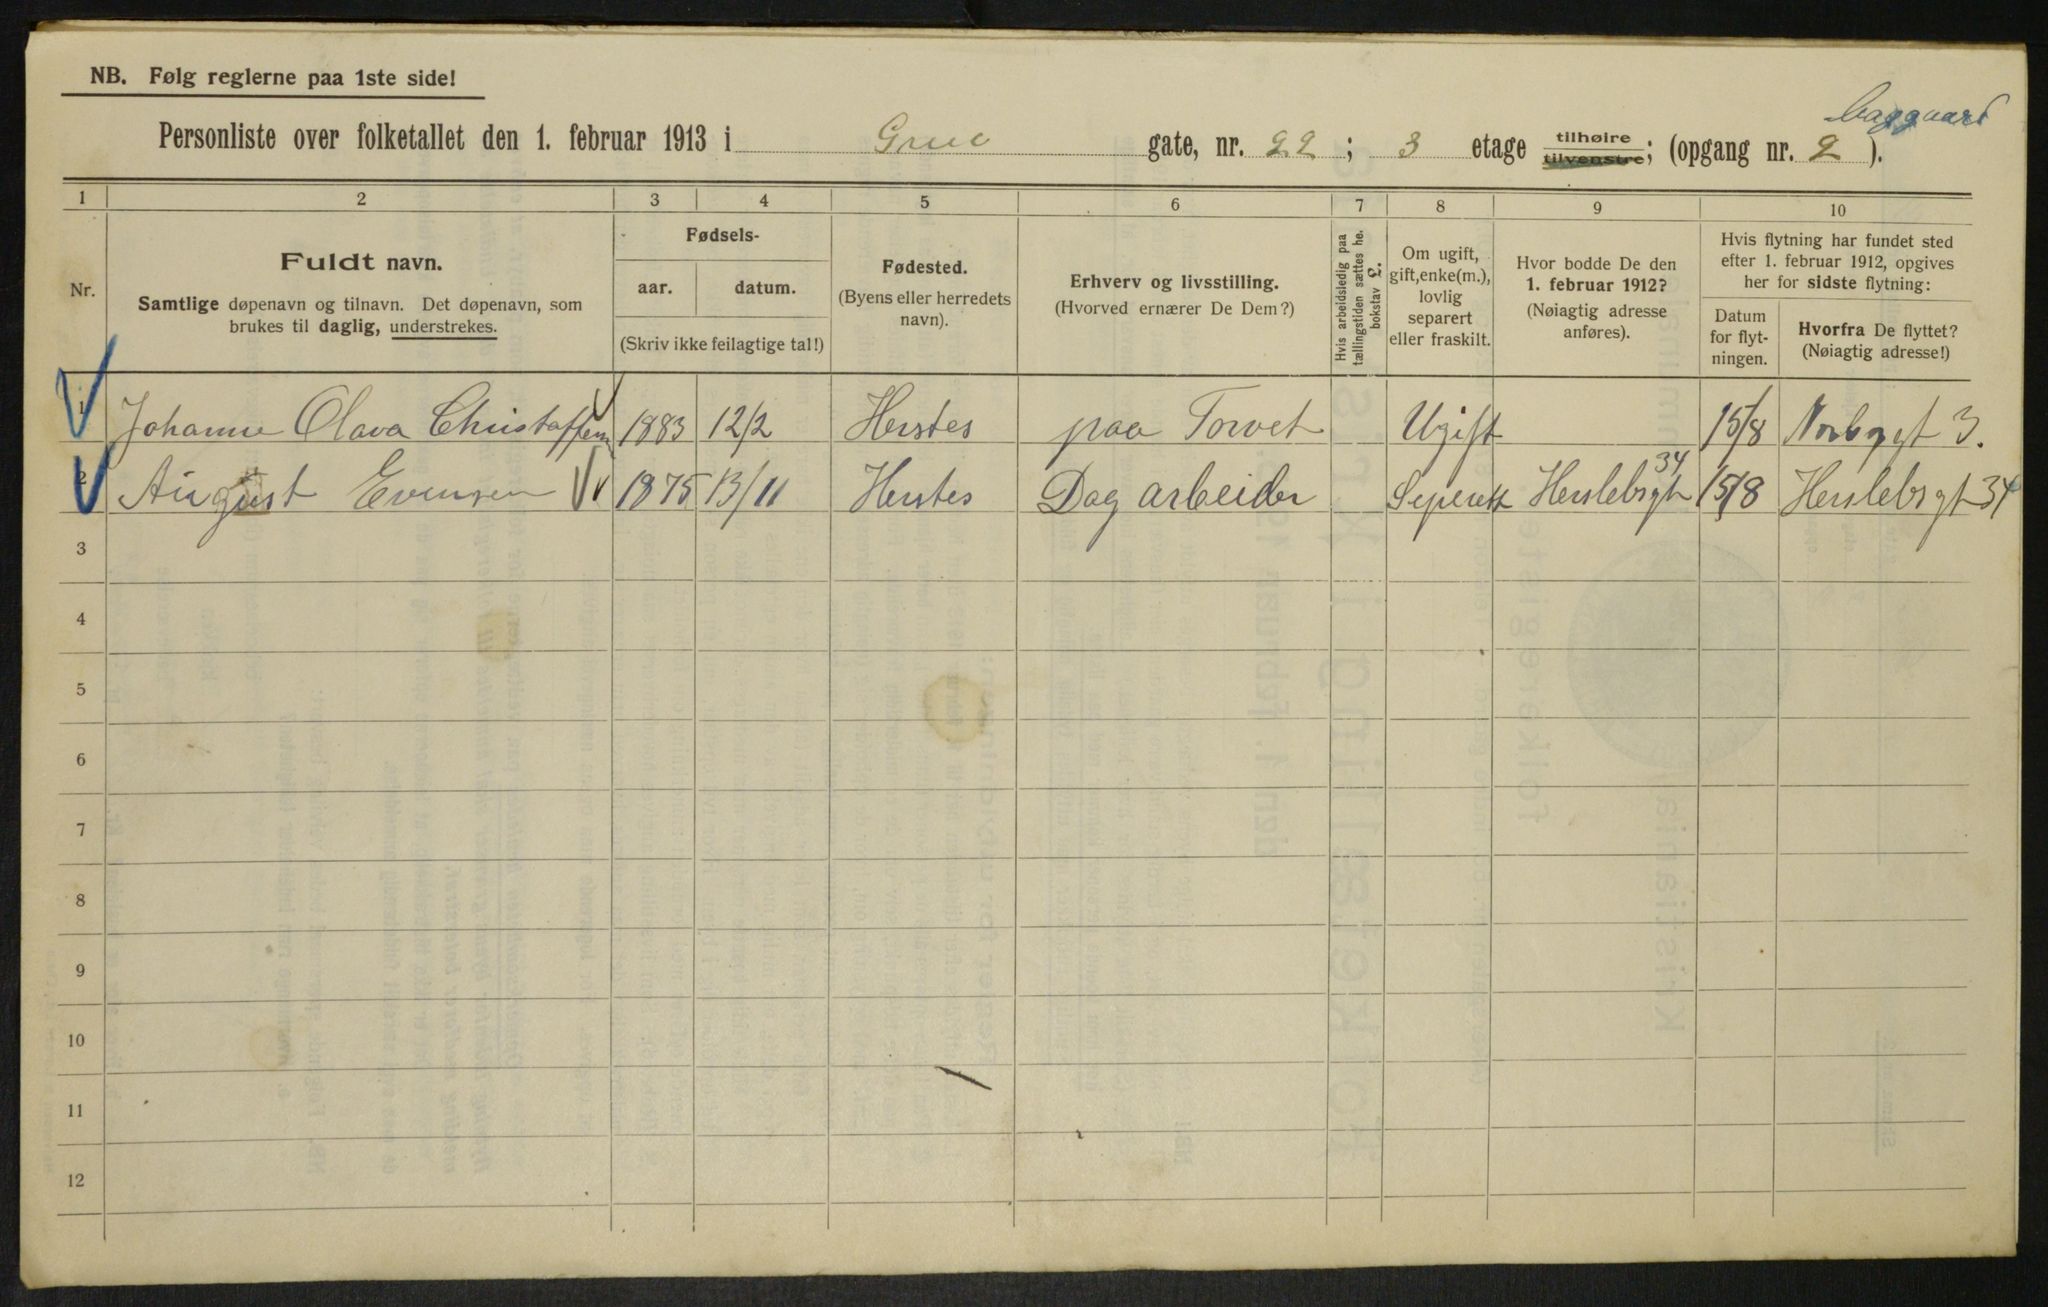 NB. Følg reglerne paa 1ste side!
Baggaard
Personliste over folketallet den 1. februar 1913 i Grue gate, nr. 22 ; 3 etage tilhøire tilvenstre; (opgang nr. 2 ).
1 2 3 4 5 6 7 8 9 10
Nr.
Fuldt navn.
Samtlige døpenavn og tilnavn. Det døpenavn, som
brukes til daglig, understrekes.
Fødsels-
aar. datum.
(Skriv ikke feilagtige tal!)
Fødested.
(Byens eller herredets
navn).
Erhverv og livsstilling.
(Hvorved ernærer De Dem?)
Hvis arbeidsledig paa
tællingstiden sættes he.
bokstav l.
Om ugift,
gift, enke(m.),
lovlig
separert
eller fraskilt.
Hvor bodde De den
1. februar 1912?
(Nøiagtig adresse
anføres).
Hvis flytning har fundet sted
efter 1. februar 1912, opgives
her for sidste flytning:
Datum
for flyt-
ningen.
Hvorfra De flyttet?
(Nøiagtig adresse!)
1 Johanne Olava Christoffersen 1883 12/2 Herstes paa Torvet Ugift 15/8 Norbygt 3.
2 August Evensen 1875 13/11 Herstes Dag arbeider Seperett Herslebsgt 34 15/8 Herslebsgt 34
3
4
5
6
7
8
9
10
11
12